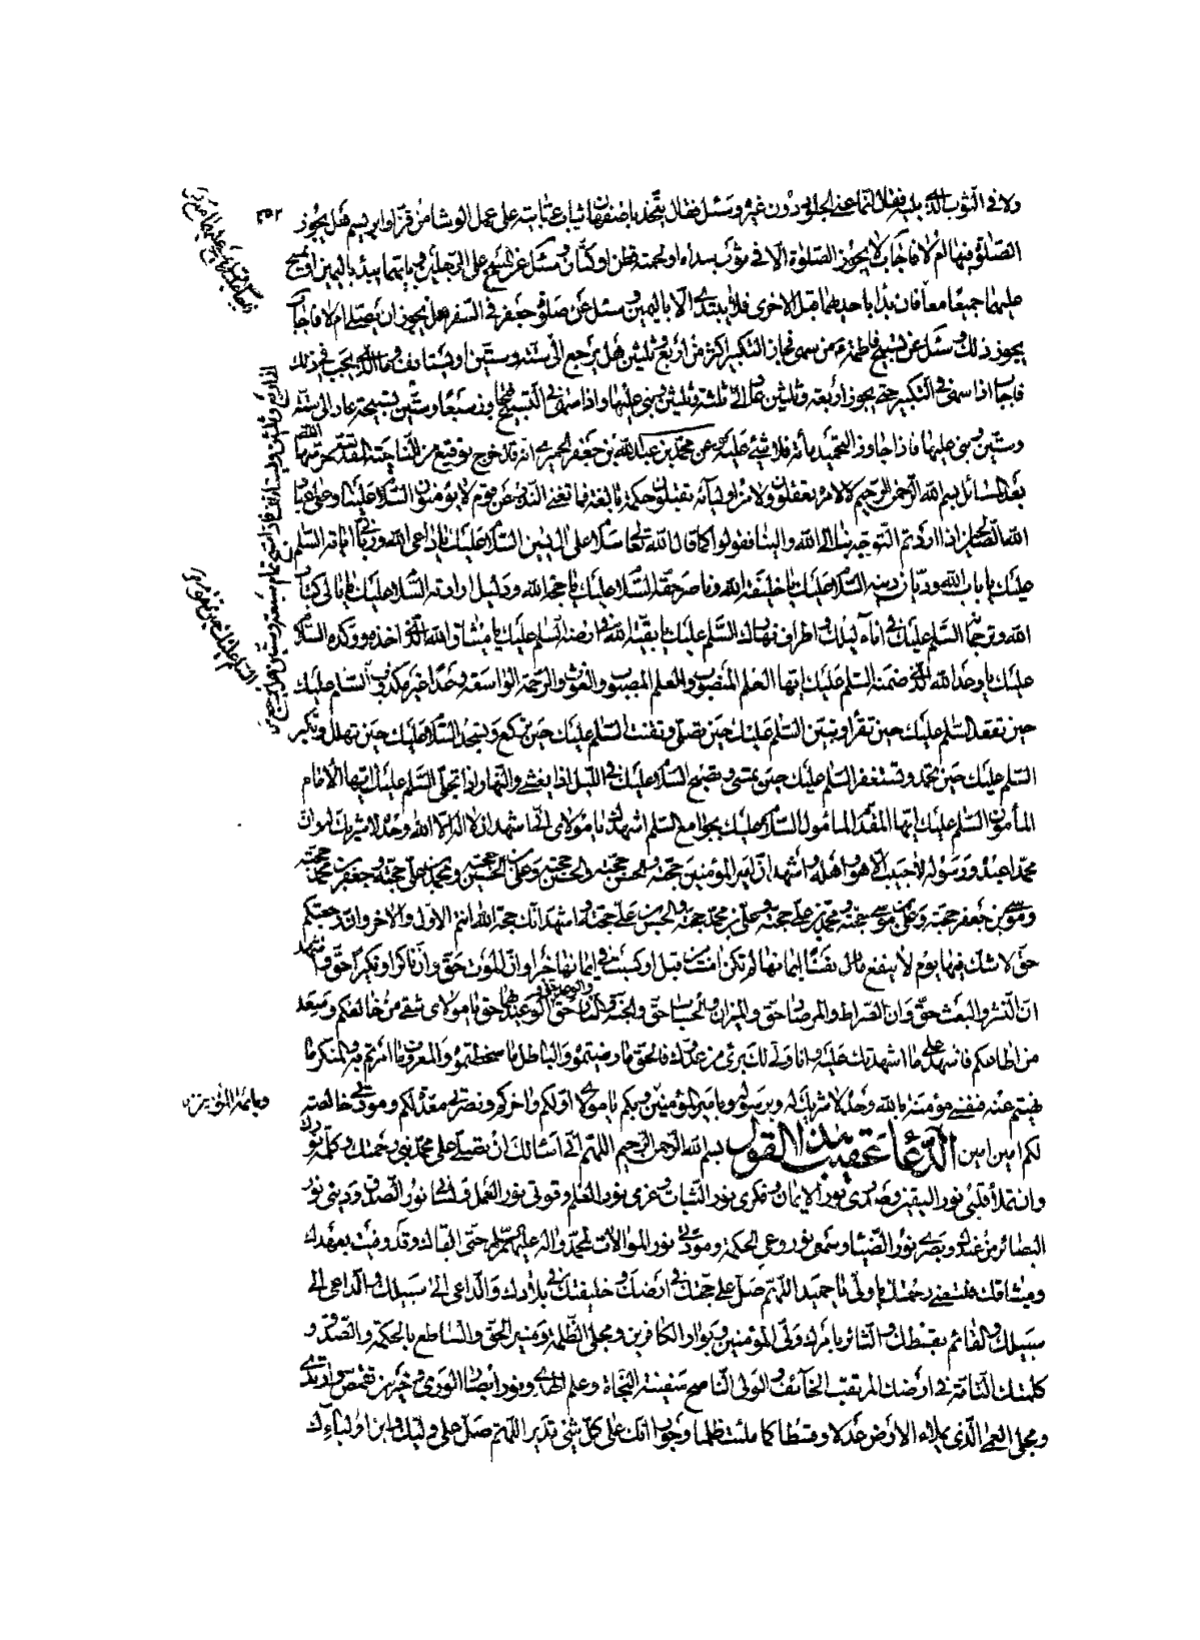 ولا في الثوب الذي يليه فقال انما عنى الجلود دون غيره وسئل فقال يتخذ باصفهان ثياب عتابية على عمل الوشا من قز او ابريسم هل يجوز
الصلوة فيها ام لا فاجاب لا يجوز الصلوة الا في ثوب سداه او لحمته قطن او كتان وسئل عن المسح على الرجلين بايتهما يبدء باليمين او يمسح
عليهما جميعا معا فان بدا باحديهما قبل الاخرى فلا يبتدى الا باليمين وسئل عن صلوة جعفر في السفر هل يجوز ان يصلى ام لا فاجاب
يجوز ذلك وسئل عن تسبيح فاطمة ع من سهى فجاز التكبير اكثر من اربع وثلثين هل يرجع الى ستة وستين او يستانف وما الذي يجب في ذلك
فاجاب اذا سهى في التكبير حتى يجوز اربعة وثلثين عاد الى ثلثة وثلثين ويبنى عليها واذا سهى في التسبيح فتجاوز سبعا وستين تسبيحة عاد الى ستة
وستين وبنى عليها فاذا جاوز التحميد مأة فلا شئ عليه وعن محمد بن عبد الله بن جعفر الحميرى انه قد خرج توقيع من الناحية المقدسة حرسها الله
بعد المسائل بسم الله الرحمن الرحيم لا لامر الله تعقلون ولا من اوليائه تقبلون حكمة بالغة فما تغني النذر عن قوم لا يؤمنون السلام علينا وعلى عباد
الله الصالحين اذا اردتم التوجه بنا الى الله والينا فقولوا كما قال الله تعالى سلام على آل يس السلام عليك يا داعى الله وربانى آياته السلم
عليك يا باب الله وديان دينه السلام عليك يا خليفة الله وناصر حقه السلام عليك يا حجة الله ودليل ارادته السلام عليك يا تالى كتاب
الله وترجمانه السلم عليك في اناء ليلك واطراف نهارك السلم عليك يا بقية الله في ارضه السلم عليك يا ميثاق الله الذي اخذه ووكده السلام
عليك يا وعد الله الذي ضمنه السلم عليك ايها العلم المنصوب والعلم المصبوب والغوث والرحمة الواسعة وعدا غير مكذوب السلم عليك
حين تقعد السلم عليك حين تقرا وتبين السلم عليك حين تصلى وتقنت السلم عليك حين تركع وتسجد السلام عليك حين تهلل وتكبر
السلم عليك حين تحمد وتستغفر السلم عليك حين تمسى وتصبح السلام عليك في الليل اذا يغشى والنهار اذا تجلى السلم عليك ايها الامام
المأمون السلم عليك ايها المقدم المامول السلام عليك بجوامع السلم اشهدك يا مولاى انى اشهد ان لا اله الا الله وحده لا شريك له وان
محمدا عبده ورسوله لا حبيب الا هو واهله واشهد ان امير المؤمنين حجته والحسن حجته والحسين حجته وعلى بن الحسين حجته ومحمد بن على حجته وجعفر بن محمد حجته
وموسى بن جعفر حجته وعلى بن موسى حجته ومحمد بن على حجته وعلى بن محمد حجته والحسن بن على حجته واشهد انك حجة الله انتم الاول والآخر وان رجعتكم
حق لا شك فيها يوم لا ينفع نفسا ايمانها لم تكن امنت من قبل او كسبت في ايمانها خيرا وان الموت حق وان ناكرا ونكيرا حق واشهد
ان النشر والبعث حق وان الصراط والمرصاد حق والميزان والحساب حق والجنة والنار حق والوعد والوعيد بهما حق يا مولاى شقى من خالفكم وسعد
من اطاعكم فاشهد على ما اشهدتك عليه وانا ولى لك برئ من عدوك فالحق ما رضيتموه والباطل ما سخطتموه والمعروف ما امرتم به والمنكر ما
نهيتم عنه فنفسى مؤمنة بالله وحده لا شريك له وبرسوله وبامير المؤمنين وبكم يا مولاى اولكم وآخركم ونصرتى معدة لكم ومودتى خالصة
لكم امين امين الدعاء عقيب هذا القول بسم الله الرحمن الرحيم اللهم انى اسئلك ان تصلى على محمد نبى رحمتك وكلمة نورك
وان تملا قلبى نور اليقين وصدرى نور الايمان وفكرى نور الثبات وعزمى نور العلم وقوتى نور العمل ولسانى نور الصدق ودينى نور
البصائر من عندك وبصرى نور الضياء وسمعى نور وعى الحكمة ومودتى نور الموالاة لمحمد وآله عليهم السلم حتى القاك وقد وفيت بعهدك
وميثاقك فلتسعنى رحمتك يا ولى يا حميد اللهم صل على حجتك في ارضك وخليفتك في بلادك والداعى الى سبيلك والداعى الى
سبيلك والقائم بقسطك والثائر بامرك ولى المؤمنين وبوار الكافرين ومجلى الظلمة ومنير الحق والساطع بالحكمة والصدق و
كلمتك التامة في ارضك المرتقب الخائف والولى الناصح سفينة النجاة وعلم الهدى ونور ابصار الورى وخير من تقمص وارتدى
ومجلى العمى الذي يملاء الارض عدلا وقسطا كما ملئت ظلما وجورا انك على كل شئ قدير اللهم صل على وليك وابن اوليائك
السلم عليك حين تقوم
وبائمة المؤمنين